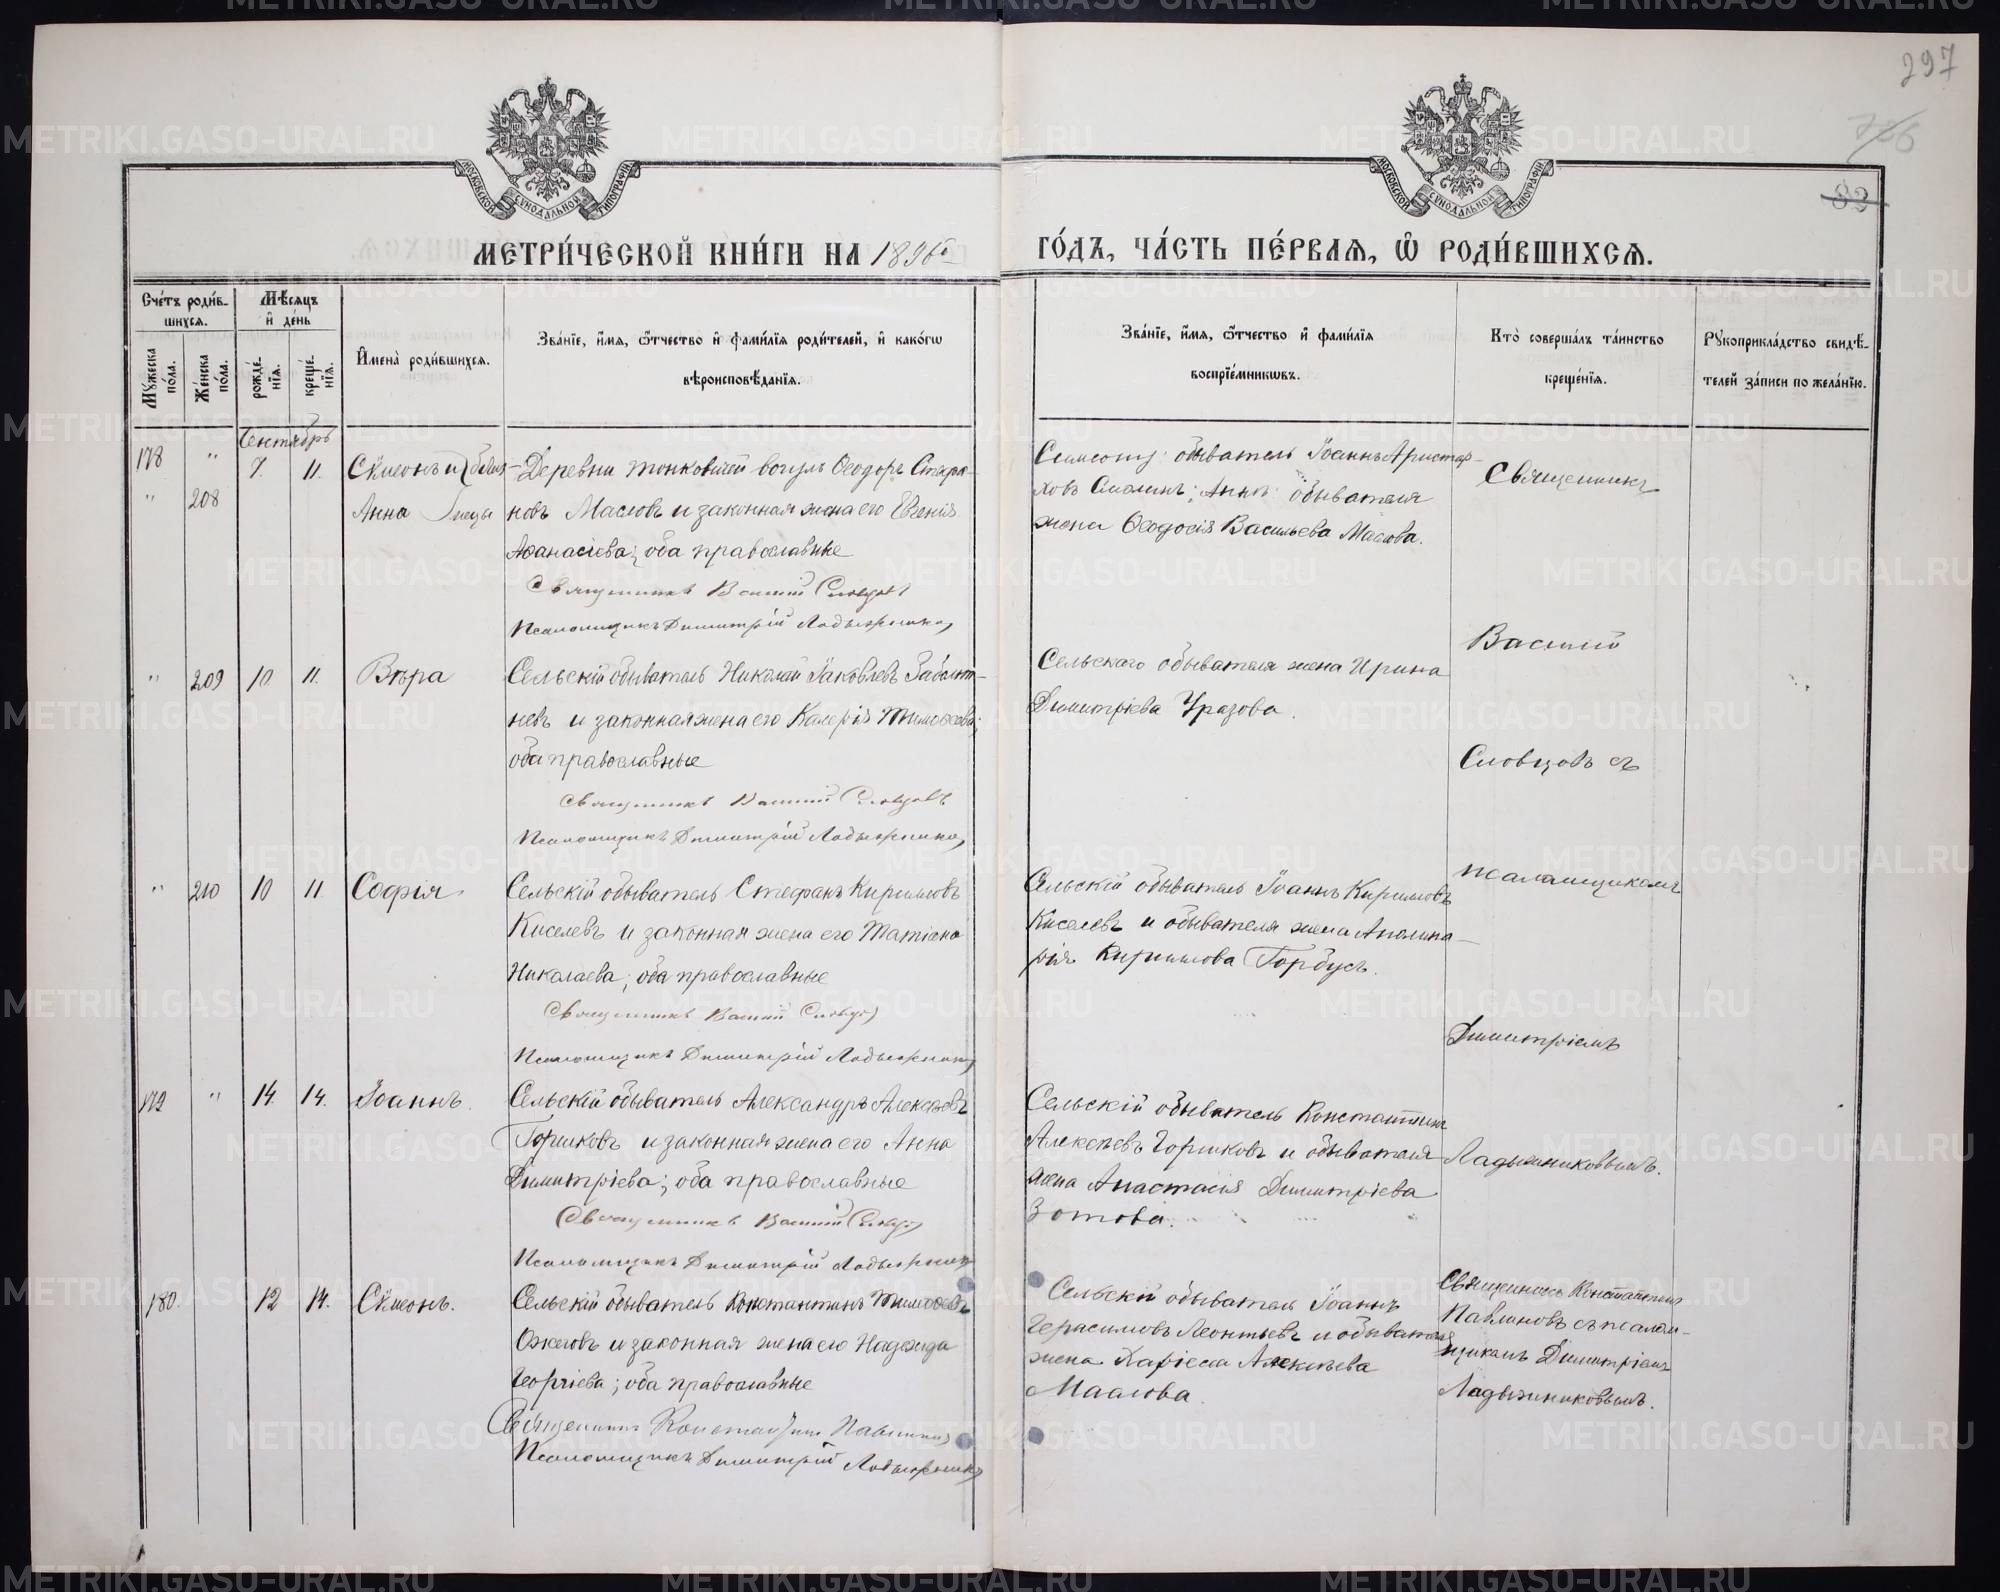 297
МОСКОВСКОЙ СѴНОДАЛЬНОЙ ТИПОГРАФІИ
МОСКОВСКОЙ СѴНОДАЛЬНОЙ ТИПОГРАФІИ
83
МЕТРИ́ЧЕСКОЙ КНИ́ГИ НА 1896й
ГО́ДЪ, ЧА́СТЬ ПЕ́РВАЯ, Ѡ РОДИ́ВШИХСЯ.
Счётъ роди́в-
шихся.
Мѣ́сяцъ
и де́нь
Мꙋжеска по́ла.
Же́нска по́ла.
рожде́нїя.
креще́нїя.
Имена̀ роди́вшихся.
Зва́нїе, и́мя, ѻ́тчество и фами́лїя роди́телей, и како́гѡ
вѣроисповѣ́данїя.
Зва́нїе, и́мя, ѻ́тчество и фами́лїя
воспрїе́мникѡвъ.
Кто̀ соверша́лъ та́инство
креще́нїя.
Рꙋкоприкла́дство свидѣ́-
телей за́писи по жела́нїю.
Сентябрь
178 " 7. 11. Сѵмеонъ и Близ-
" 208 Анна нецы
Деревни Тонковичей вогулъ Ѳеодоръ Стефа-
новъ Масловъ и законная жена его Евгенія
Аѳанасіева; оба православные
Священникъ Василій Словцовъ
Псаломщикъ Димитрій Ладыжников
Симеону: обыватель Іоаннъ Аристар-
ховъ Смолинъ; Анны: обывателя
жена Ѳеодосія Васильева Маслова.
Священникъ
" 209 10 11. Вѣра
Сельскій обыватель Николай Іаковлевъ Заболот-
невъ и законная жена его Калерія Тимоѳеева;
оба православные
Священникъ Василій Словцовъ
Псаломщикъ Димитрій Ладыжников
Сельскаго обывателя жена Ирина
Димитріева Уразова.
Василій
Словцовъ съ
" 210 10 11. Софія
Сельскій обыватель Стефанъ Кирилловъ
Киселевъ и законная жена его Татіана
Николаева; оба православные
Священникъ Василій Словцов
Псаломщикъ Димитрій Ладыжников
Сельскій обыватель Іоаннъ Кирилловъ
Киселевъ и обывателя жена Аполина-
рія Кириллова Горбусъ.
псаломщикомъ
Димитріемъ
179 " 14. 14. Іоаннъ.
Сельскій обыватель Александръ Алексѣевъ
Горшковъ и законная жена его Анна
Димитріева; оба православные
Священникъ Василій Словцов
Псаломщикъ Димитрій Ладыжников
Сельскій обыватель Константинъ
Алексѣевъ Горшковъ и обывателя
жена Анастасія Димитріева
Зотова.
Ладыжниковымъ.
180. 12 14. Сѵмеонъ.
Сельскій обыватель Константинъ Тимоѳеевъ
Ожеговъ и законная жена его Надежда
Георгіева; оба православные
Священникъ Константинъ Павлинов
Псаломщикъ Димитрій Ладыжников
Сельскій обыватель Іоаннъ
Герасимовъ Леонтьевъ и обывателя
жена Хариеса Алексѣева
Маслова.
Священникъ Константинъ
Павлиновъ съ псалом-
щикомъ Димитріемъ
Ладыжниковымъ.
METRIKI.GASO-URAL.RU